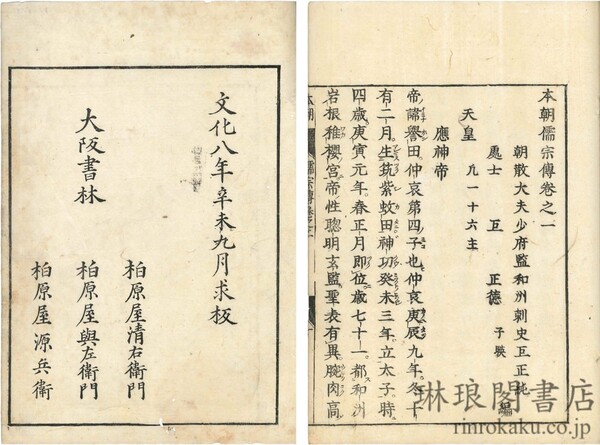 本朝儒宗傳卷之一
朝散大夫少府監和洲朝史亙正純
愚士 亙 正德 子 編
天皇 凡一十六主
應神帝
帝諱譽田仲哀第四子也仲哀庚辰九年冬十
有二月生筑紫蚊田神功癸未三年立太子時
四歲庚寅元年春正月即位歲七十一都和洲
岩根稚櫻宮帝性聰明玄監聖表有異腕肉高
本朝儒宗傳
文化八年辛未九月求板
大阪書林
柏原屋清右衛門
柏原屋與左衛門
柏原屋源兵衛
琳琅閣書店
rinrokaku.co.jp